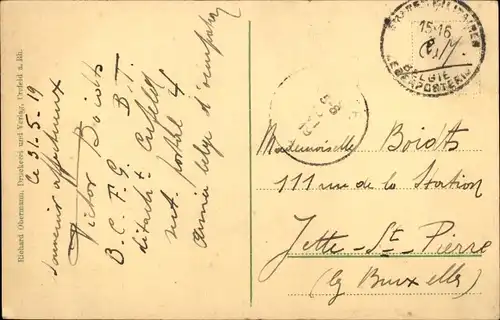 Richard Obermann, Druckerei und Verlag, Crefeld a. Rh.
ce 31-5-19
souvenir affectueux
Victor Boidts
B.C.F.G. B.T.
détach Crefeld
mt. postal 4
Armée belge d'occupation
POSTES MILITAIRES
15-16
C.M.
BELGIE
LEGERPOSTERIJ
Mademoiselle Boidts
111 rue de la Station
Jette-St-Pierre
(lez Bruxelles)